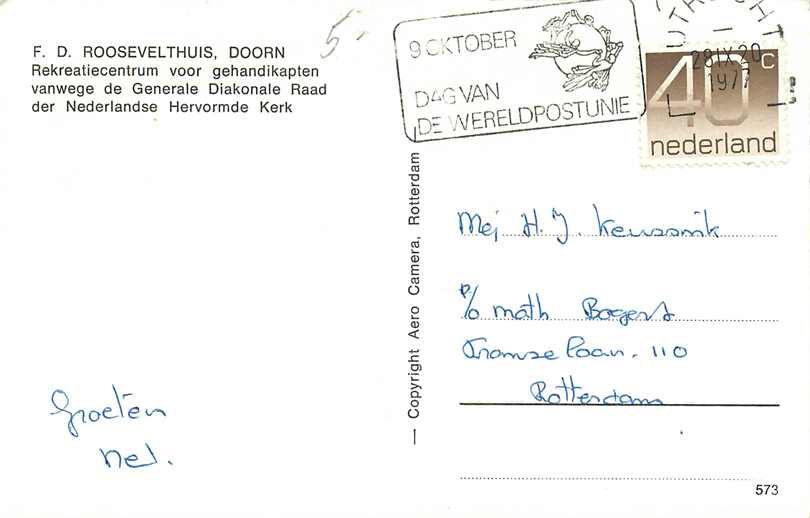 F. D. ROOSEVELTHUIS, DOORN
Rekreatiecentrum voor gehandikapten
vanwege de Generale Diakonale Raad
der Nederlandse Hervormde Kerk
5-
9 OKTOBER
DAG VAN
DE WERELDPOSTUNIE
UTRECHT
28 IX 20
1977
40c
nederland
— Copyright Aero Camera, Rotterdam —
Mej H. J.
P/o math Bogert
110
Rotterdam
Groeten
Nel.
573